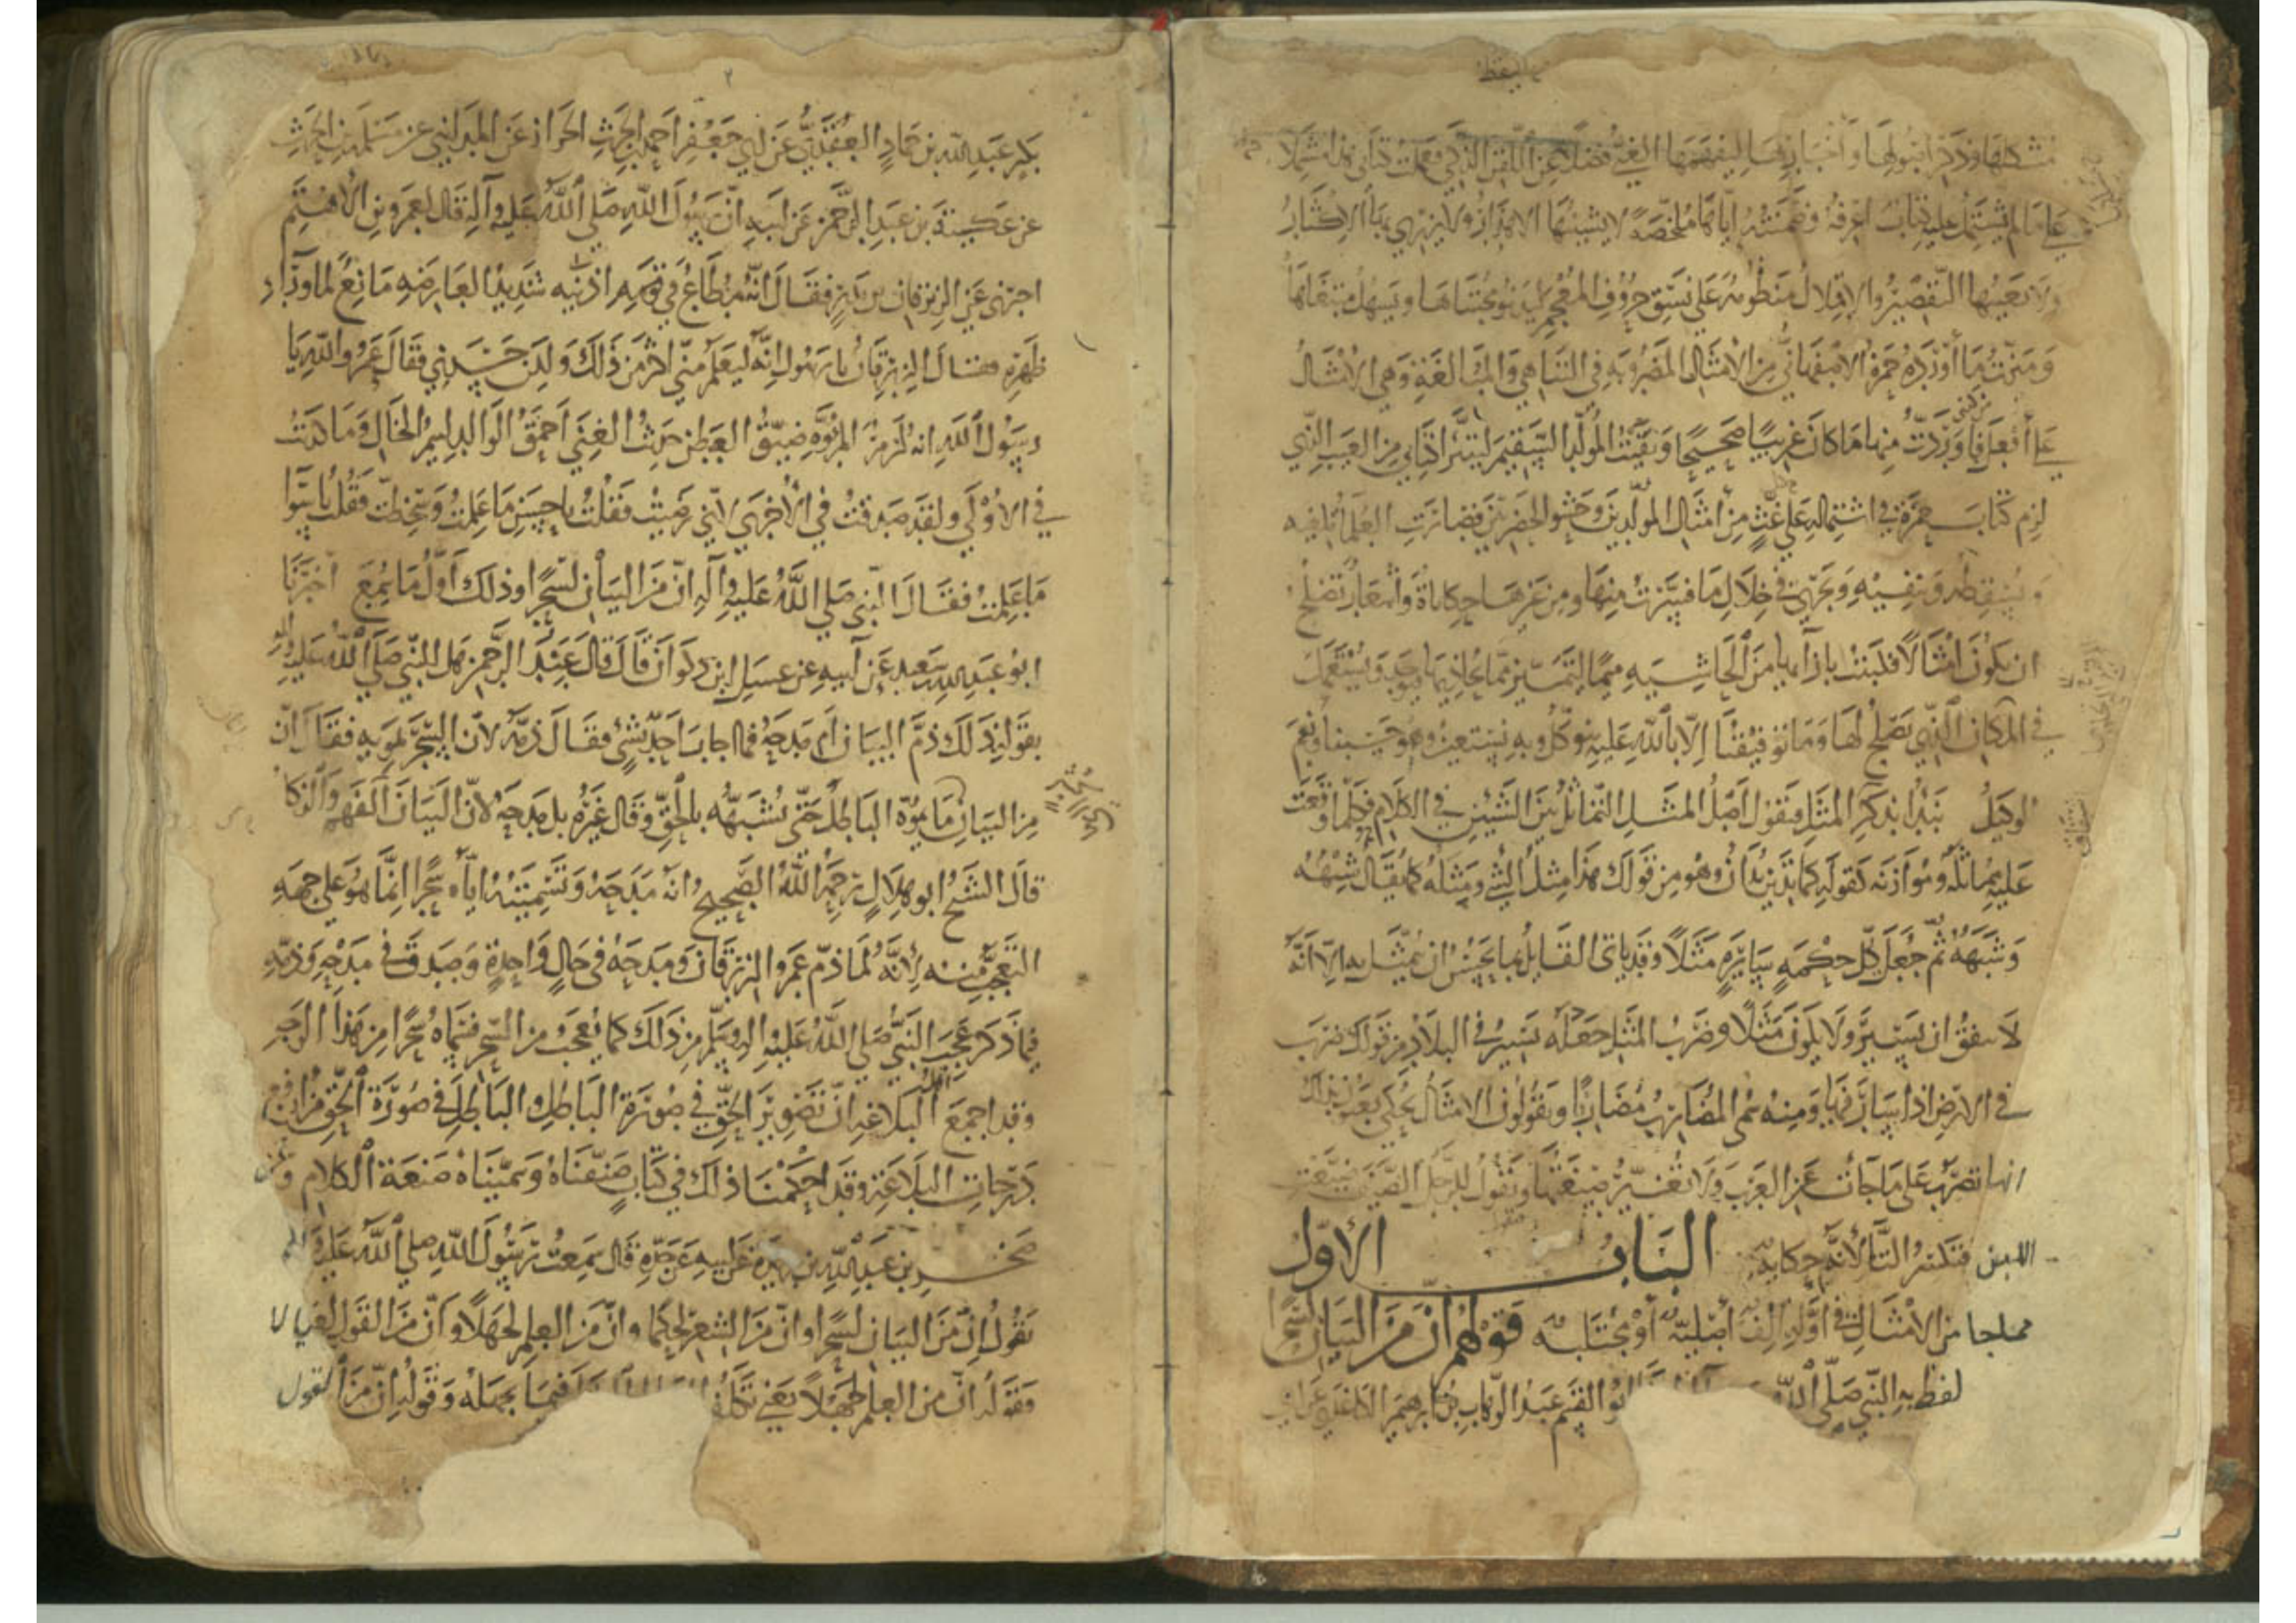 مشكلها وذكر اصولها واخبارها ليفهمها الغبي فضلا عن اللقن الذكي فعملت كتابي هذا مشتملا
على ما لم يشتمل عليه كتاب اعرفه وضمنته اياها ملخصة لا يشينها الاهذار ولا يزري بها الاكثار
ولا يعيبها التقصير والاقلال منظومة على نسق حروف المعجم ليدنو مجتناها ويسهل مبتغاها
وميزت ما أورده حمزة الاصفهاني من الأمثال المضروبة في التناهي والمبالغة وهي الأمثال
على أفعل من كذا فأوردت منها ما كان عربيا صحيحا ونفيت المولد السقيم ليتبرأ كتابي من العيب الذي
لزم كتاب حمزة في اشتماله على غث من أمثال المولدين وحشو الحضريين فصارت العلماء تلغيه
وتسقطه وتنفيه ويجري في خلال ما فسرت منها ومن غيرها حكاياة وأشعار تصلح
ان يكون أمثالا فلبثت بازائها من الحاشيه ميما لتتميز مما يجاذيها فتوجد وتستعمل
في المكان الذي يصلح لها وما توفيقنا إلا بالله عليه نتوكل وبه نستعين وهو حسبنا ونعم
الوكيل نبدأ بذكر المثل فنقول أصل المثل التماثل بين الشيئين في الكلام فكلما وقعت
عليه مماثلة وموازنة كقولهم كما تدين تدان وهو من قولك هذا مثل الشيء ومثله كما يقال شبهه
وشبهه ثم جعل كل حكمة سايرة مثلا وقد ياتى القايل بما يحسن ان يتمثل به الا انه
لا يتفق ان يسير ولا يكون مثلا وضرب المثل جعله يسير في البلاد من قولك ضرب
في الارض اذا سار فيها ومنه سمي المضارب مضاربا ويقولون الامثال تحكى يعنون بذلك
انها تضرب على ما جاءت عن العرب ولا تغير صيغتها وتقول للرجل الصيف ضيعت
اللبن فتكسر التاء لانه حكاية الباب الاول
مما جا من الأمثال في أوله الف أصلية أو مجتلبه قولهم ان من البيان لسحرا
لفظ به النبي صلى الله ابو القسم عبد الوهاب بن ابرهيم الكاغدي عن ابي
بكر عبد الله بن حماد العقدي عن ابي جعفر احمد بن الحرث الخراز عن المدايني عن مسلمة بن الحرث
عن عكينة بن عبد الرحمن عن ابيه ان رسول الله صلى الله عليه وآله قال لعمرو بن الاهتم
اخبرني عن الزبرقان بن بدر فقال انه مطاع في قومه اذنيه شديد العارضه مانع لما وراء
ظهره فقال الزبرقان يا رسول انه ليعلم مني اكثر من ذلك ولكن حسدني فقال عمرو والله يا
رسول الله انه لزمر المروة ضيق العطن حديث الغنى احمق الوالد لئيم الخال وما كذبت
في الاولى ولقد صدقت في الأخرى لاني رضيت فقلت باحسن ما علمت وسخطت فقلت باسوا
ما علمت فقال النبي صلى الله عليه وآله ان من البيان لسحرا وذلك أول ما سمع اخبرنا
ابو عبد الله سعيد عن أبيه عن عسل ابن ذكوان قال قال عبد الرحمن هل النبي صلى الله عليه وآله
بقوله ذلك ذم البيان أم مدحه فما اجاب احد بشيء فقال ذمه لان السحر تمويه فقال ان
من البيان ما يموه الباطل حتى يشبهه بالحق وقال غيره بل مدحه لان البيان الفهم والذكا
قال الشيخ ابو هلال رحمه الله الصحيح انه مدحه وتسميته اياه سحرا انما هو على جهه
التعجب منه لأنه لما ذم عمرو الزبرقان ومدحه في حال واحدة وصدق في مدحه وذمه
فيما ذكر عجب النبي صلى الله عليه وآله وسلم من ذلك كما يعجب من السحر فسماه سحرا من هذا الوجه
وقد اجمع أهل البلاغة ان تصوير الحق في صورة الباطل والباطل في صورة الحق من ارفع
درجات البلاغة وقد احكمنا ذلك في كتاب صنفناه وسميناه صنعة الكلام وعن
صخر بن عبد الله بن بريدة عن ابيه عن جده قال سمعت رسول الله صلى الله عليه وآله
يقول ان من البيان لسحرا وان من الشعر لحكما وان من العلم لجهلا وأن من القول لعيالا
وقوله ان من العلم لجهلا يعني تكلف فيما يجهله وقوله ان من القول